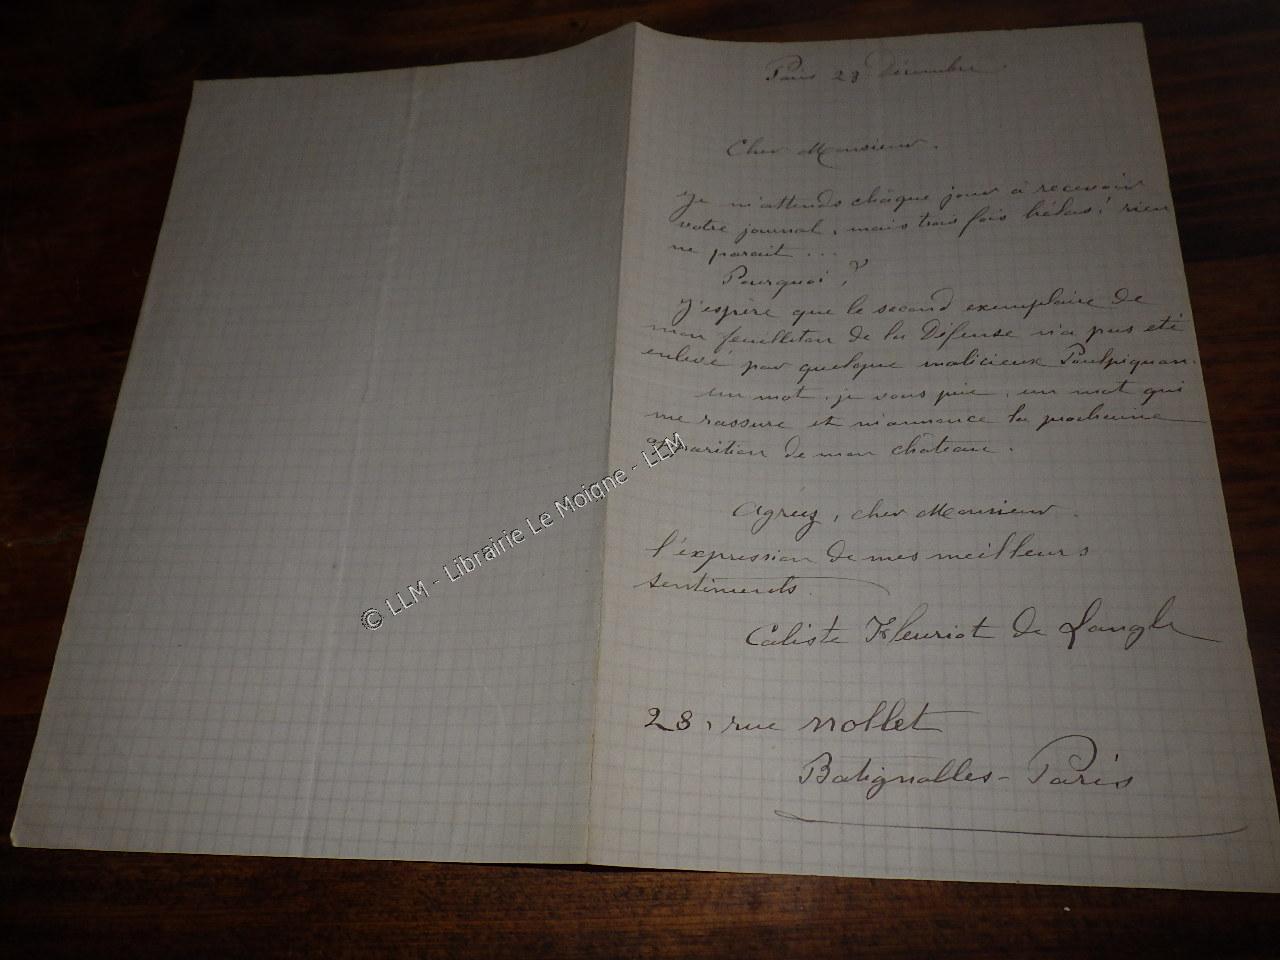 Paris 28 Décembre
Cher Monsieur.
Je m'attends châque jour à recevoir
votre journal, mais trois fois hélas! rien
ne parait ...
Pourquoi?
J'espère que le second exemplaire de
mon feuilleton de la Défense n'a pas été
enlevé par quelque malicieux Poulpiquan.
un mot, je vous prie, un mot qui
me rassure et m'annonce la prochaine
apparition de mon chateau.
Agréez, cher Monsieur.
l'expression de mes meilleurs
sentiments.
Caliste Fleuriot de Langle
28, rue Nollet
Batignolles - Paris
© LLM - Librairie Le Moigne - LLM